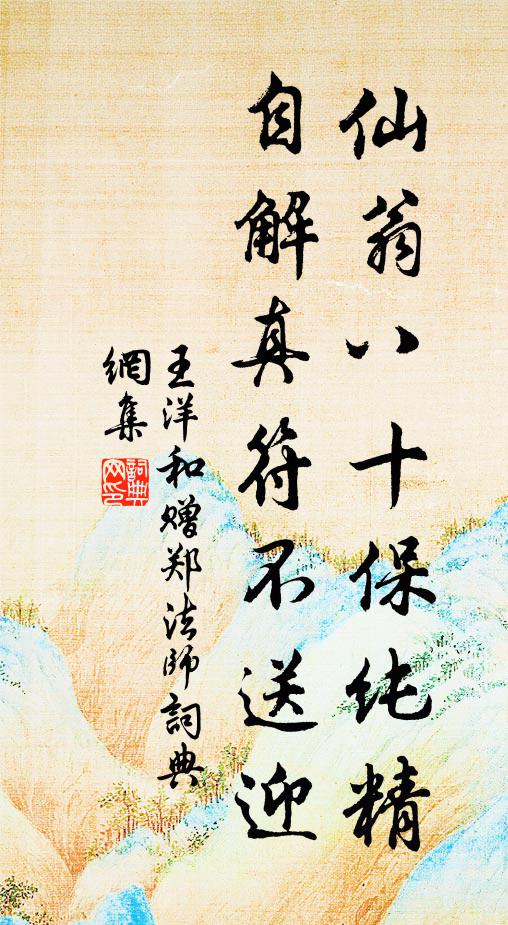 仙翁八十保纯精
自解真符不送迎
王洋和赠郑法師詞典
網集
詞典
网印